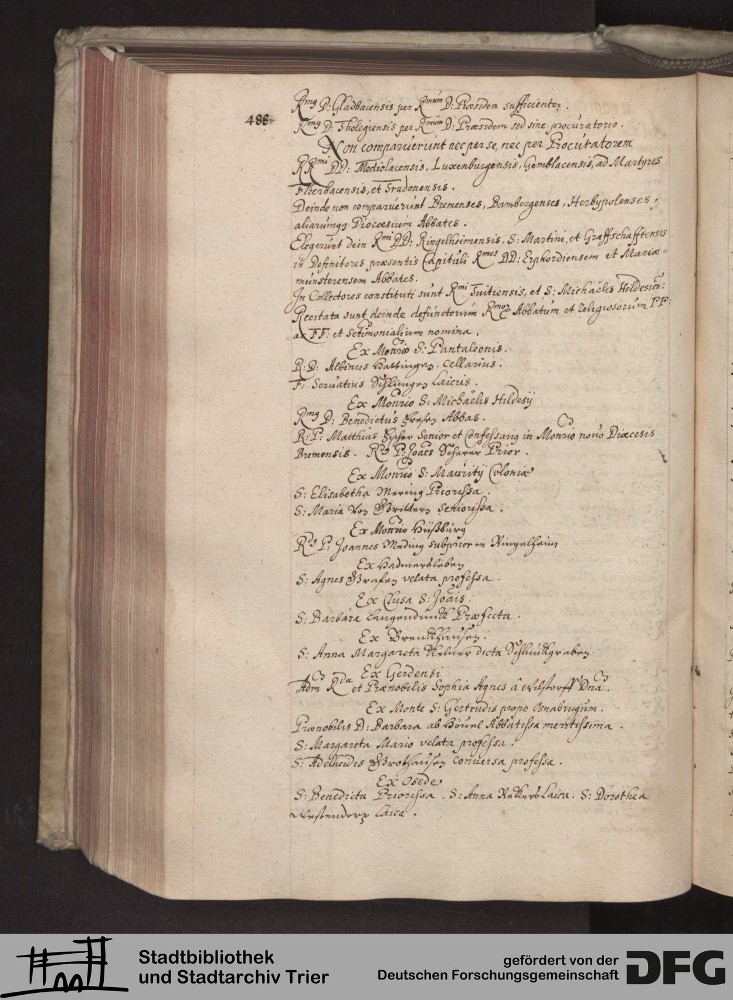 486
Rmg D: Gladbacensis per Rmum D: Præsidem sufficienter.
Rmg D: Tholegiensis per Rmum D: Præsidem sed sine procuratorio.
Non comparuerunt nec per se, nec per Procuratorem
RRmi DD: Mediolacensis, Luxenburgensis, Gemblacensis, ad Martyres
et Trudonensis.
Deinde non comparuerunt Bremenses, Bambergenses, Herbypolenses,
aliarumq Diocæsium Abbates.
Elegerunt dein Rmi DD: Ringelheimensis, S: Martini, et Graffschafftensis
in Definitores præsentis Capituli Rmos DD: Erphordiensem et Mariæ-
munsterensem Abbates.
In Collectores constituti sunt Rmi Tuitiensis, et S: Michaëlis Hildesien:
Recitata sunt deinde defunctorum Rmor Abbatum et Religiosorum PP:
ac FF: et Sctimonialium nomina.
Ex Monrio S: Pantaleonis.
R: D: Albinus Hattingen. Cellarius.
F: Servatius Schlingen Laicus.
Ex Monrio S: Michaëlis Hildesij
Rmg D: Benedictus Abbas.
R: P: Matthias Senior et Confessarig in Monrio novo Diæcesis
Bremensis. Rdg P: Joaës Scherer Prior.
Ex Monrio S: Maurity Coloniæ
S: Elisabetha Mering Priorissa.
S: Maria Von Seniorissa.
Ex Monrio Hüsburg
Rdg P: Joannes Meding subprior in Ringelheim
Ex Hadmersleben
S: Agnes Grafen velata professa.
Ex Clusa S: Joäis.
S: Barbara Præfecta.
Ex Brenkhausen.
S: Anna Margareta Kelner dicta Schluckgraben
Ex Gerdensi
Adm Rda et Prænobilis Sophia Agnes à Wilstorff Dna.
Ex Monte S: Gertrudis prope Osnabrugum.
Prænobilis D: Barbara ab Hövel Abbatissa meritissima.
S: Margareta Mario velata professa.
S: Adelheidis Grothausen conversa professa.
Ex Osede
S: Benedicta Priorissa. S: Anna Laica. S: Dorothea
Westendorp Laica.
Stadtbibliothek
und Stadtarchiv Trier
gefördert von der
Deutschen Forschungsgemeinschaft
DFG